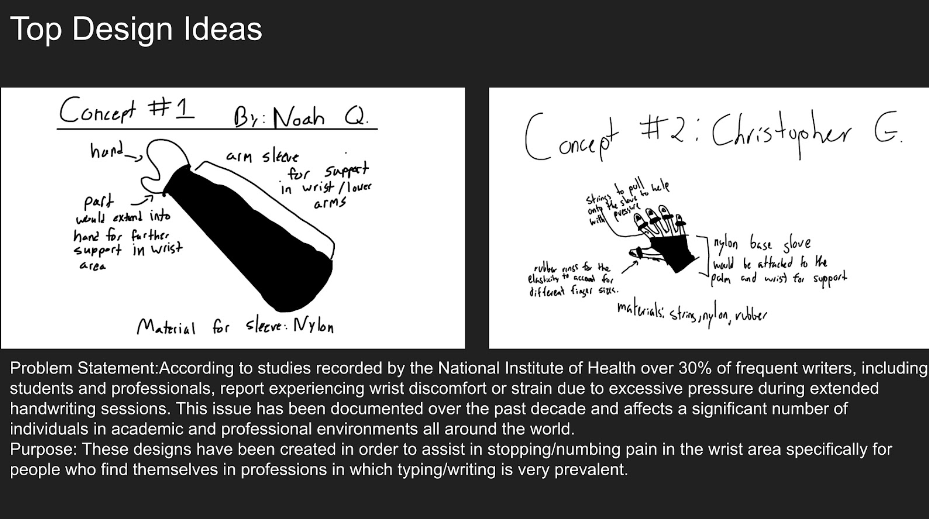 Top Design Ideas
Concept #1 By: Noah Q.
hand
arm sleeve
for support
in wrist/lower
arms
part
would extend into
hand for further
support in wrist
area
Material for sleeve: Nylon
Concept #2: Christopher G.
strings to pull
only the slove to help
with pressure
nylon base glove
would be attached to the
palm and wrist for support
rubber rings for the
elasticity to account for
different finger sizes.
materials: string, nylon, rubber
Problem Statement:According to studies recorded by the National Institute of Health over 30% of frequent writers, including
students and professionals, report experiencing wrist discomfort or strain due to excessive pressure during extended
handwriting sessions. This issue has been documented over the past decade and affects a significant number of
individuals in academic and professional environments all around the world.
Purpose: These designs have been created in order to assist in stopping/numbing pain in the wrist area specifically for
people who find themselves in professions in which typing/writing is very prevalent.